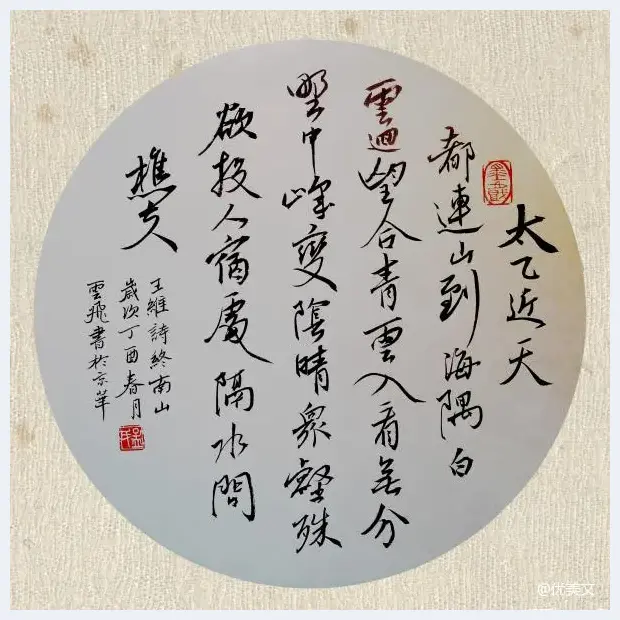 太乙近天
都連山到海隅白
雲迴望合青雲入看無分
野中峰變陰晴衆壑殊
欲投人宿處隔水問
樵夫
王維詩終南山
歲次丁酉春月
雲飛書於京華
@优美文